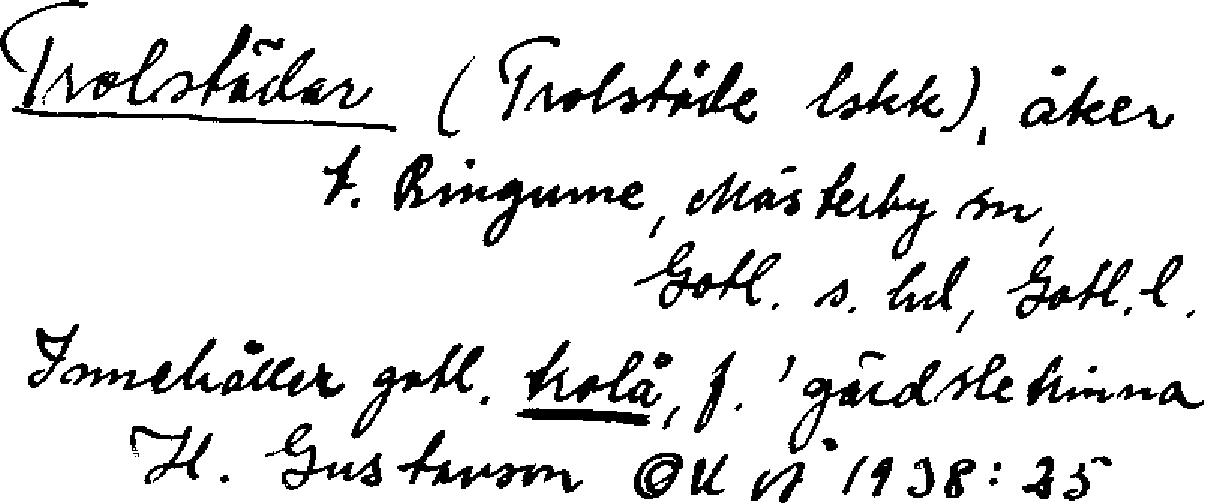 Trolstädar (Trolstäde lskk), åker
t. Ringume, Mästerby sn,
Gotl. s. hd, Gotl. l.
Innehåller gotl. trolå, f. 'gärdsletrinna
H. Gustavson 1938: 25